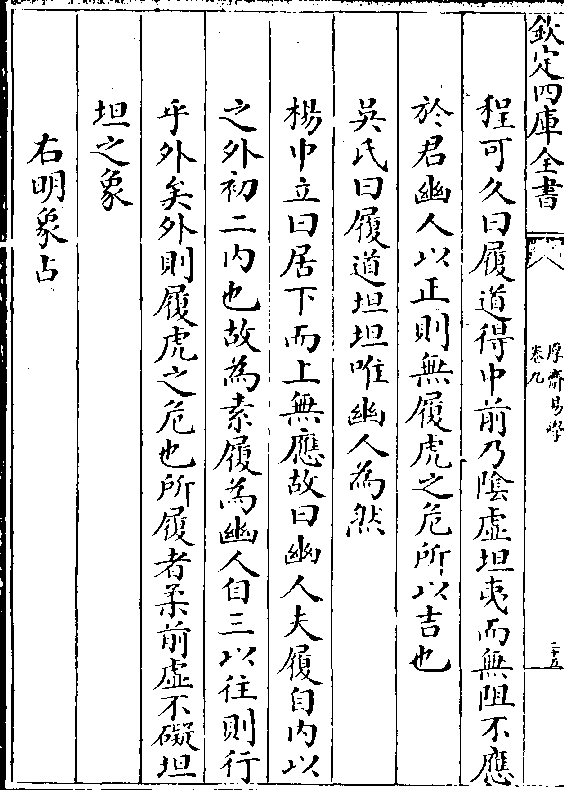 欽定四庫全書
厚齋易學
卷九
二十五
程可久曰履道得中前乃陰虛坦夷而無阻不應
於君幽人以正則無履虎之危所以吉也
吳氏曰履道坦坦唯幽人為然
楊中立曰居下而上無應故曰幽人夫履自内以
之外初二内也故為素履為幽人自三以往則行
乎外矣外則履虎之危也所履者柔前虛不礙坦
坦之象
右明象占